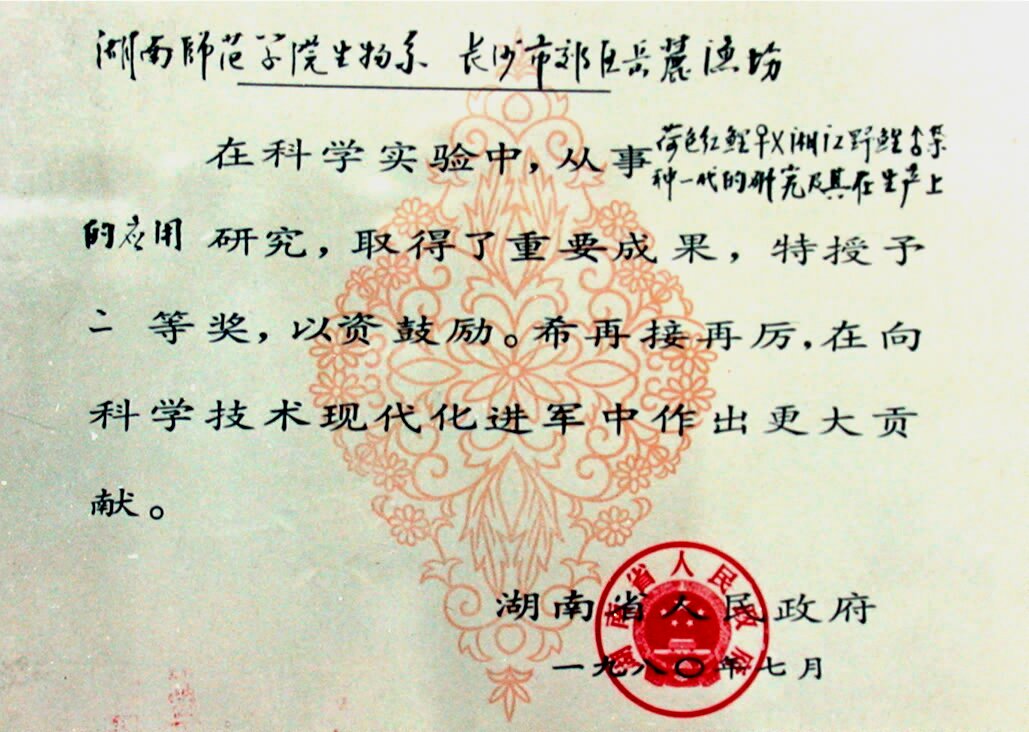 湖南師范学院生物系 长沙市郊区岳麓渔场
在科学实验中，从事荷色红鲤♀X湘江野鲤♂杂
种一代的研究及其在生产上
的应用 研究，取得了重要成果，特授予
二 等奖，以资鼓励。希再接再厉，在向
科学技术现代化进军中作出更大贡
献。
湖南省人民政府
一九八〇年七月
湖南省人民政府